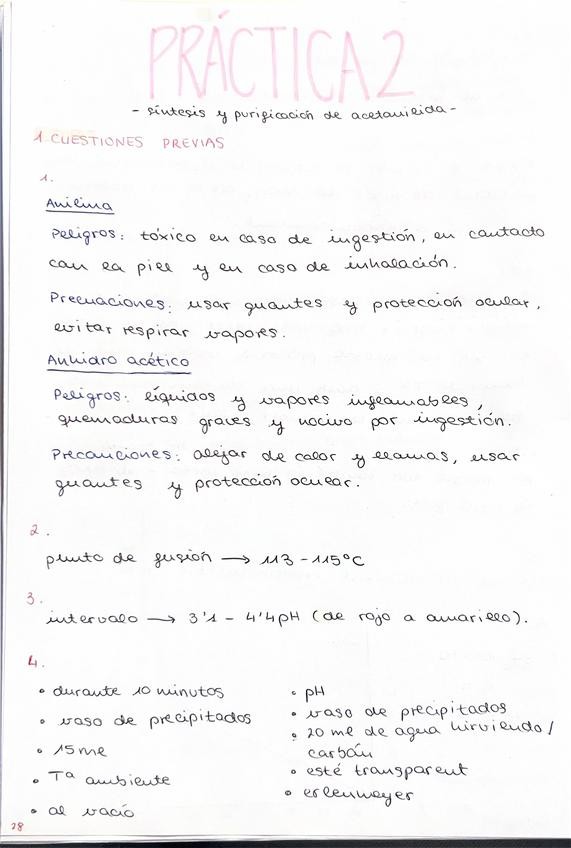 PRÁCTICA 2
- síntesis y purificación de acetanilida -
1 CUESTIONES PREVIAS
1.
Anilina
Peligros: tóxico en caso de ingestión, en cantacto
can la piel y en caso de inhalación.
Precuaciones: usar guantes y protección ocular,
evitar respirar vapores.
Anhidro acético
Peligros: líquidos y vapores inflamables,
quemaduras graves y nocivo por ingestión.
Precauciones: alejar de calor y llamas, usar
guantes y protección ocular.
2.
punto de fusión → 113 - 115°C
3.
intervalo → 3'1 - 4'4pH (de rojo a amarillo).
4.
• durante 10 minutos
• vaso de precipitados
• 15 ml
• Tª ambiente
• al vacío
• pH
• vaso de precipitados
• 20 ml de agua hirviendo /
carbón
• esté transparent
• erlenmeyer
28